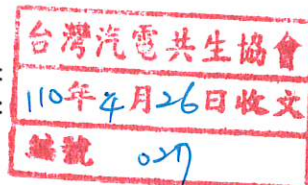 台灣汽電共生協會
110年4月26日收文
編號 027